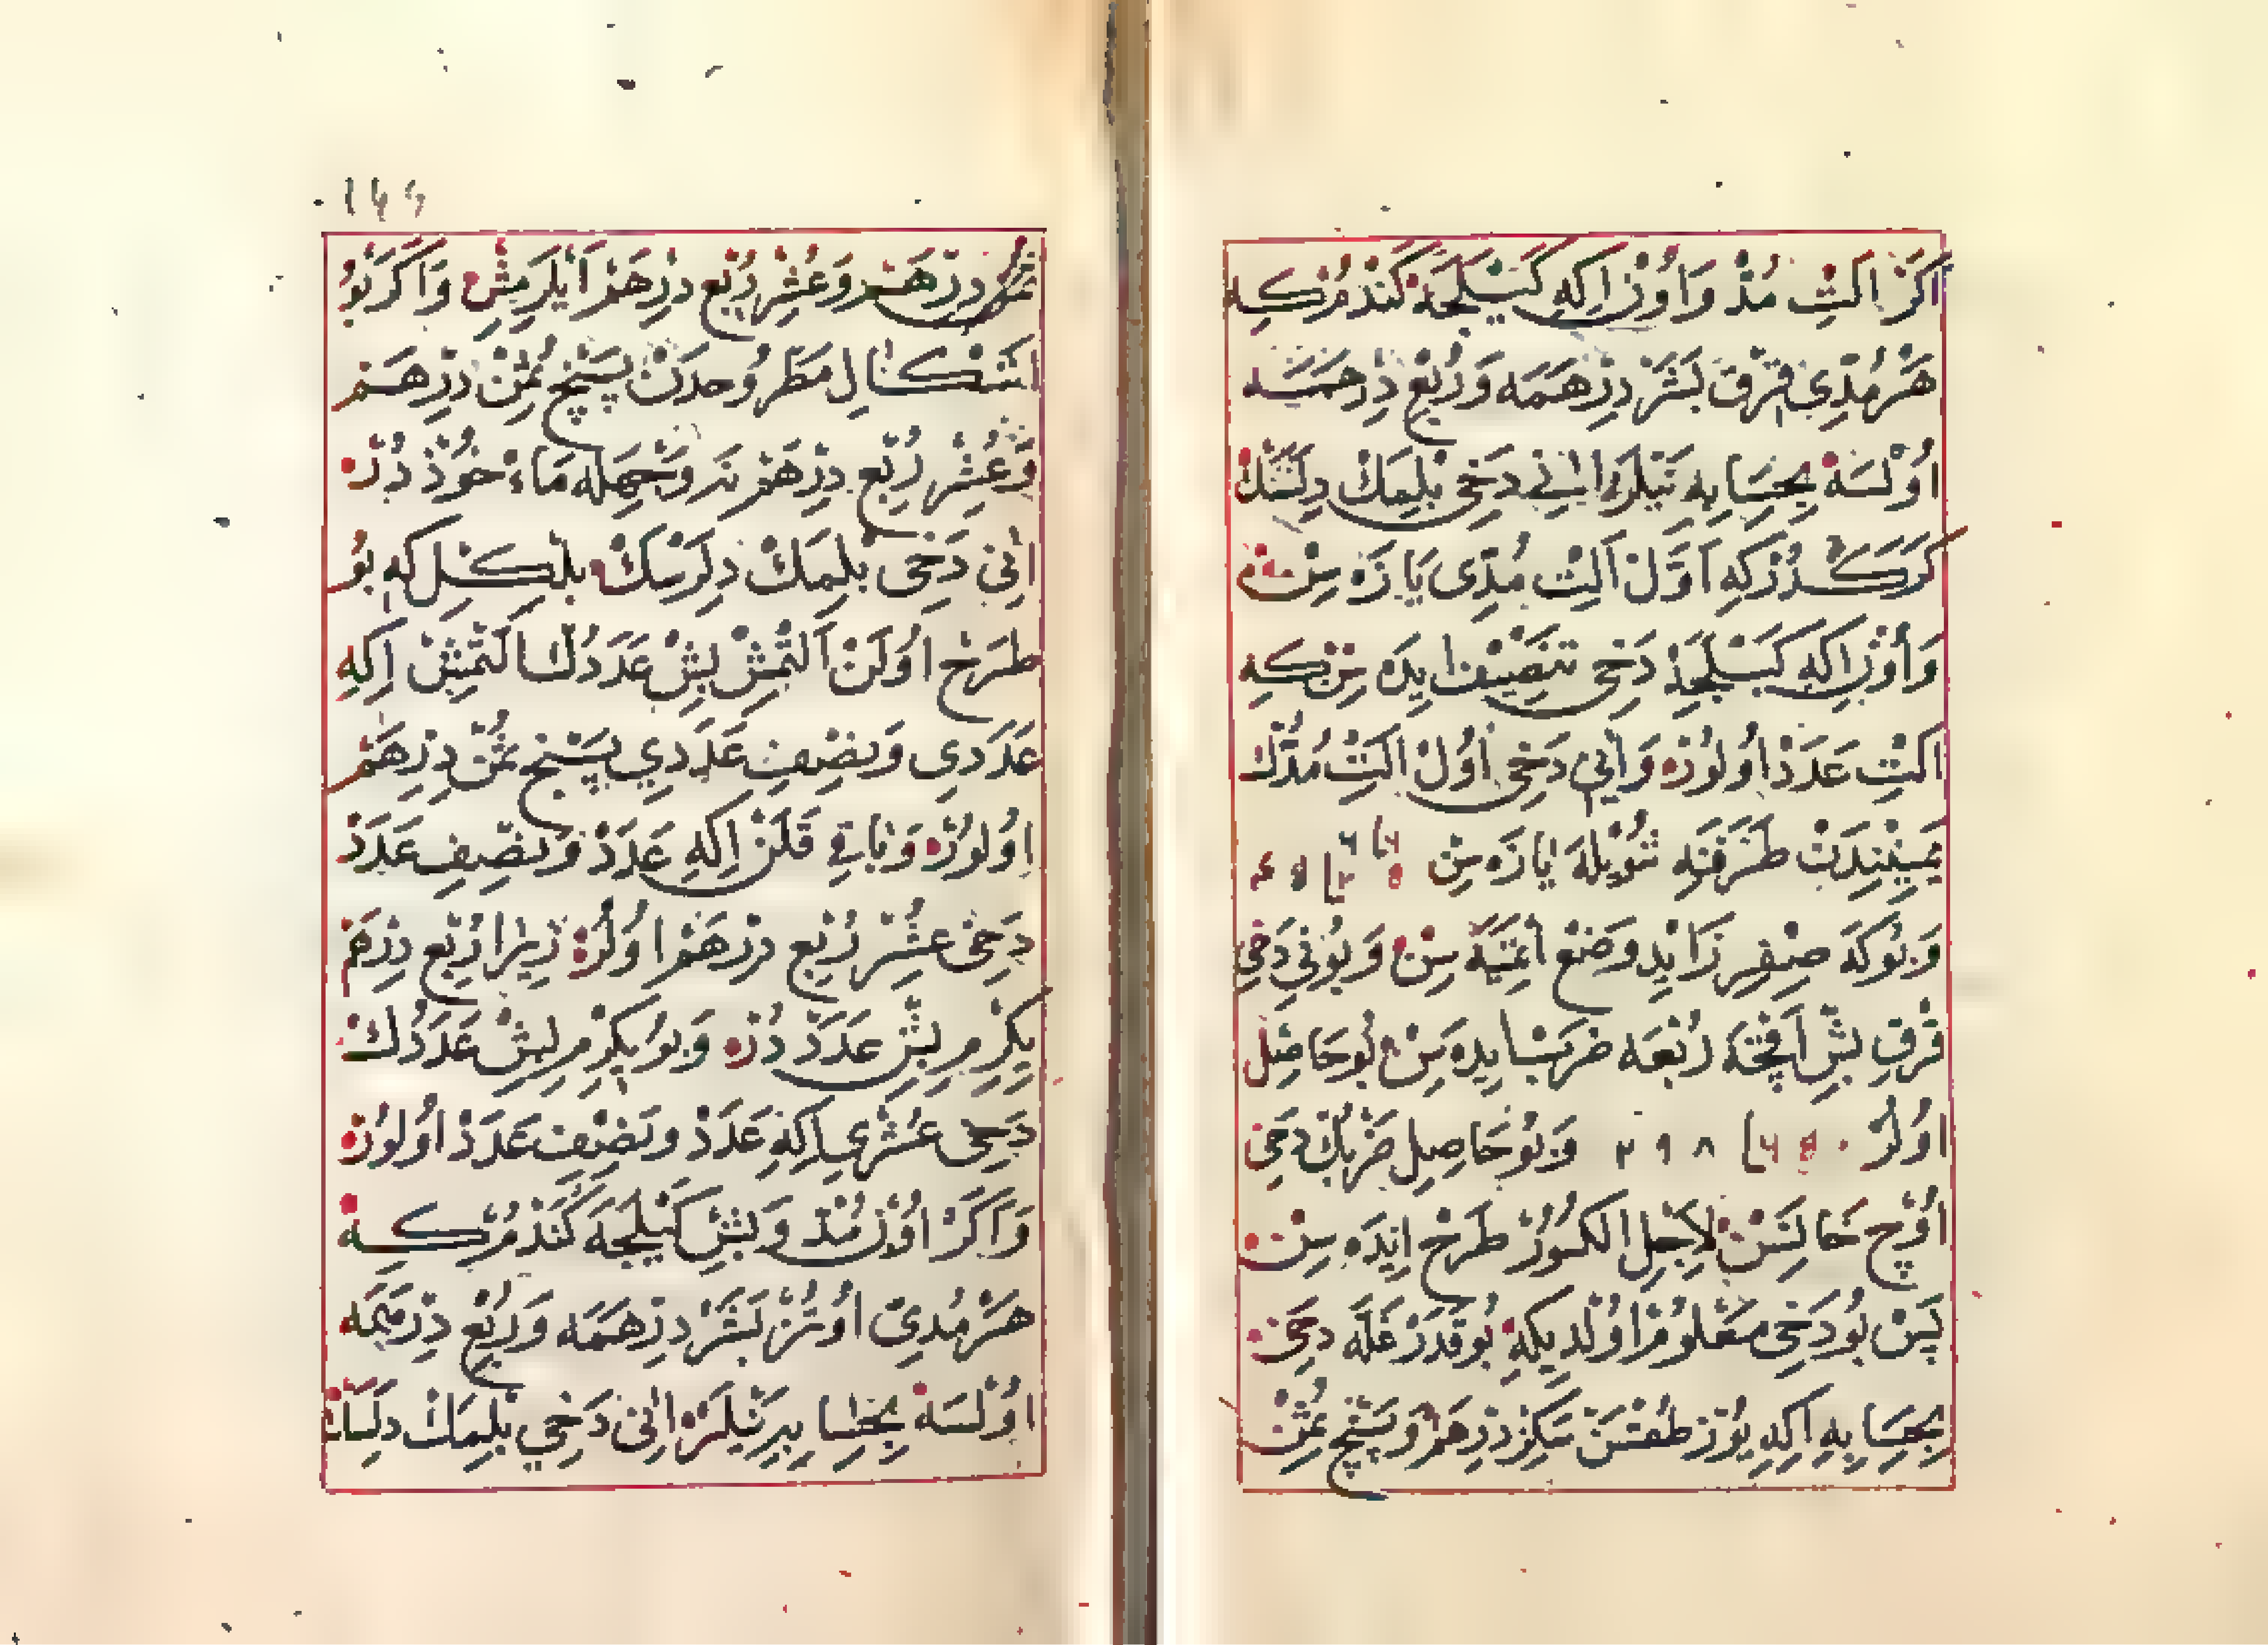 اَكَرْ اَلْتِ مُدْ وَاُوْنْ اِكِهِ كَيْلَجَهْ كَنْدُمْ كِه
هَرْ مُدِّى قِرْقْ بَشَرْ دِرْهَمَه وَرُبْعِ دِرْهَمَه
اُوْلْسَهْ بِحِسَابِهِ نَيْلَرْ اَنِى دَخِى بِلْمَكْ دِلَسَنْكْ
كَرَكْدُرْ كِهِ اَوَّلْ اَلْتِ مُدِّى يَازَهْ سِنْ
وَاُوْنْ اِكِهِ كَيْلَجَهْ دَخِى تَنْصِيفْ اِيدَهْ سِنْ كِه
اَلْتِ عَدَدْ اُولُورْ وَاَنِى دَخِى اُوْلْ اَلْتِ مُدُّكْ
يَمِينِنْدَنْ طَرَفَنِه شُوْيْلَه يَازَهْ سِنْ
وَبُوكَه صِفِرِ زَائِدِ وَضْعْ اَتْمَيَهْ سِنْ وَبُونِى دَخِى
قِرْقِ بَشْ اَقْچَهْ رُبْعَه ضَرْبْ اِيدَهْ سِنْ بُو حَاصِلْ
اُولُرْ ٠ ٨ ٩ ٢ وَبُو حَاصِلِ ضَرْبُكْ دَخِى
اُوْچْ خَانَسِنْ لِاَجْلِ الْكُسُورْ طَرْحْ اِيدَهْ سِنْ
پَسْ بُو دَخِى مَعْلُومْ اُولْدِيكِهِ بُو قَدَرْ غَلَّه دَخِى
بِحِسَابِهِ اِكِهِ يُوزْ طُقْسَنْ سَكِزْ دِرْهَمْ وَبَشْ ثُمْنْ
ثُمُنْ دِرْهَمْ وَعُشْرِ رُبْعِ دِرْهَمْ اَيْلَرْمِشْ وَاَكَرْ بُو
اَشْكَالِ مَطْرُوحَدَنْ بَشْ ثُمْنْ دِرْهَمْ
وَعُشْرِ رُبْعِ دِرْهَمْ نَه وَجْهِلَه مَاءْخُوذْدُرْ
اَنِى دَخِى بِلْمَكْ دِلَرْسَكْ بِلْكِلْ كِه بُو
طَرْحْ اُولَنْ اَلْتْمِشْ بَشْ عَدَدُكْ اَلْتْمِشْ اِكِهِ
عَدَدِى وَنِصْفِ عَدَدِى بَشْ ثُمْنْ دِرْهَمْ
اُولُورْ وَبَاقِى قَلَنْ اِكِهِ عَدَدْ وَنِصْفِ عَدَدْ
دَخِى عُشْرِ رُبْعِ دِرْهَمْ اُولُرْ زِيرَا رُبْعِ دِرْهَمْ
يِكِرْمِ بَشْ عَدَدْدُرْ وَبُو يِكِرْمِ بَشْ عَدَدُكْ
دَخِى عُشْرِى اِكِهِ عَدَدْ وَنِصْفِ عَدَدْ اُولُورْ
وَاَكَرْ اُوْنْ مُدْ وَبَشْ كَيْلَجَهْ كَنْدُمْ كِه
هَرْ مُدِّى اُوتُزْ بَشَرْ دِرْهَمَه وَرُبْعِ دِرْهَمَه
اُوْلْسَهْ بِحِسَابِهِ نَيْلَرْ اَنِى دَخِى بِلْمَكْ دِلَسَنْكْ